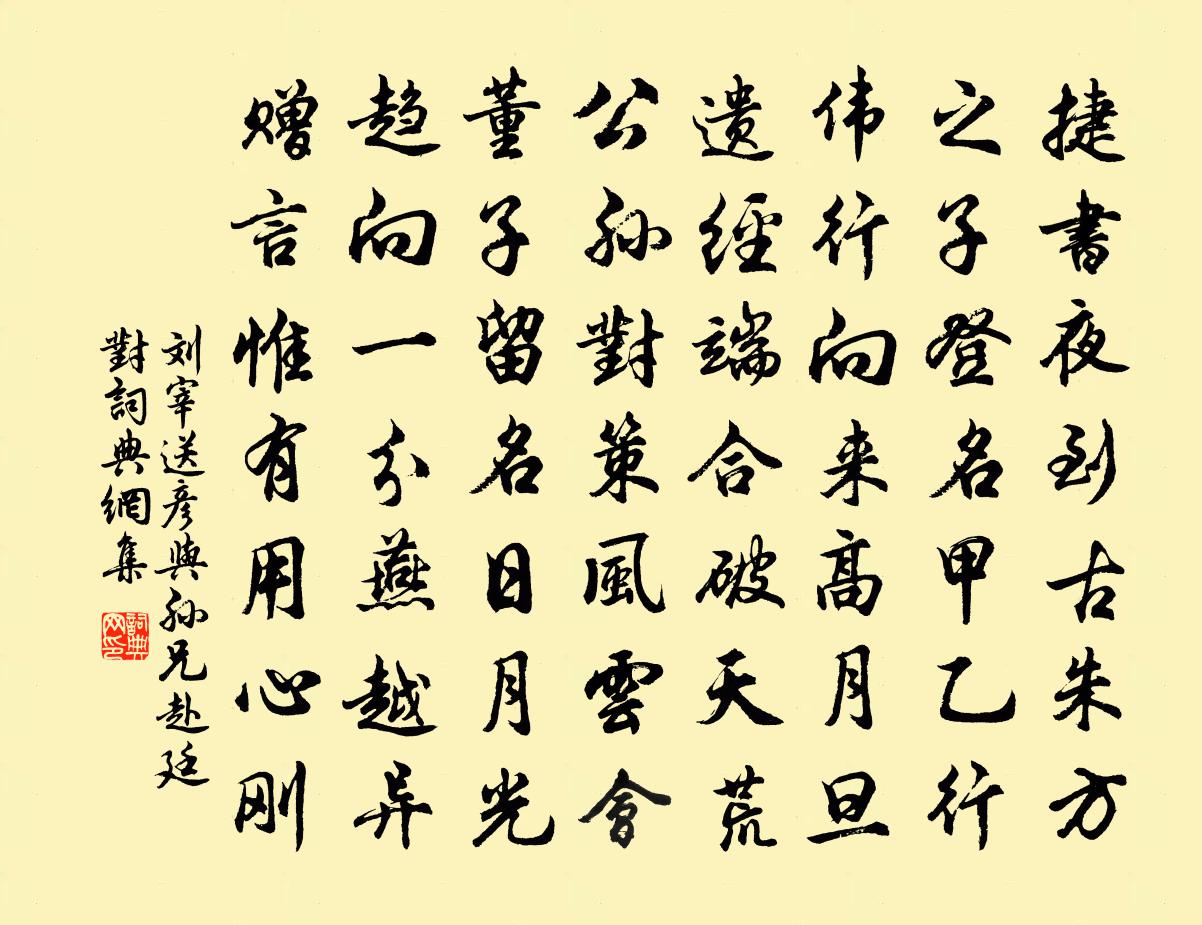 捷書夜到古朱方
之子登名甲乙行
伟行向来高月旦
遗經端合破天荒
公孙對策風雲會
董子留名日月光
趋向一分燕越异
赠言惟有用心刚
刘宰送彦與孙兄赴廷
對詞典網集
詞典网印